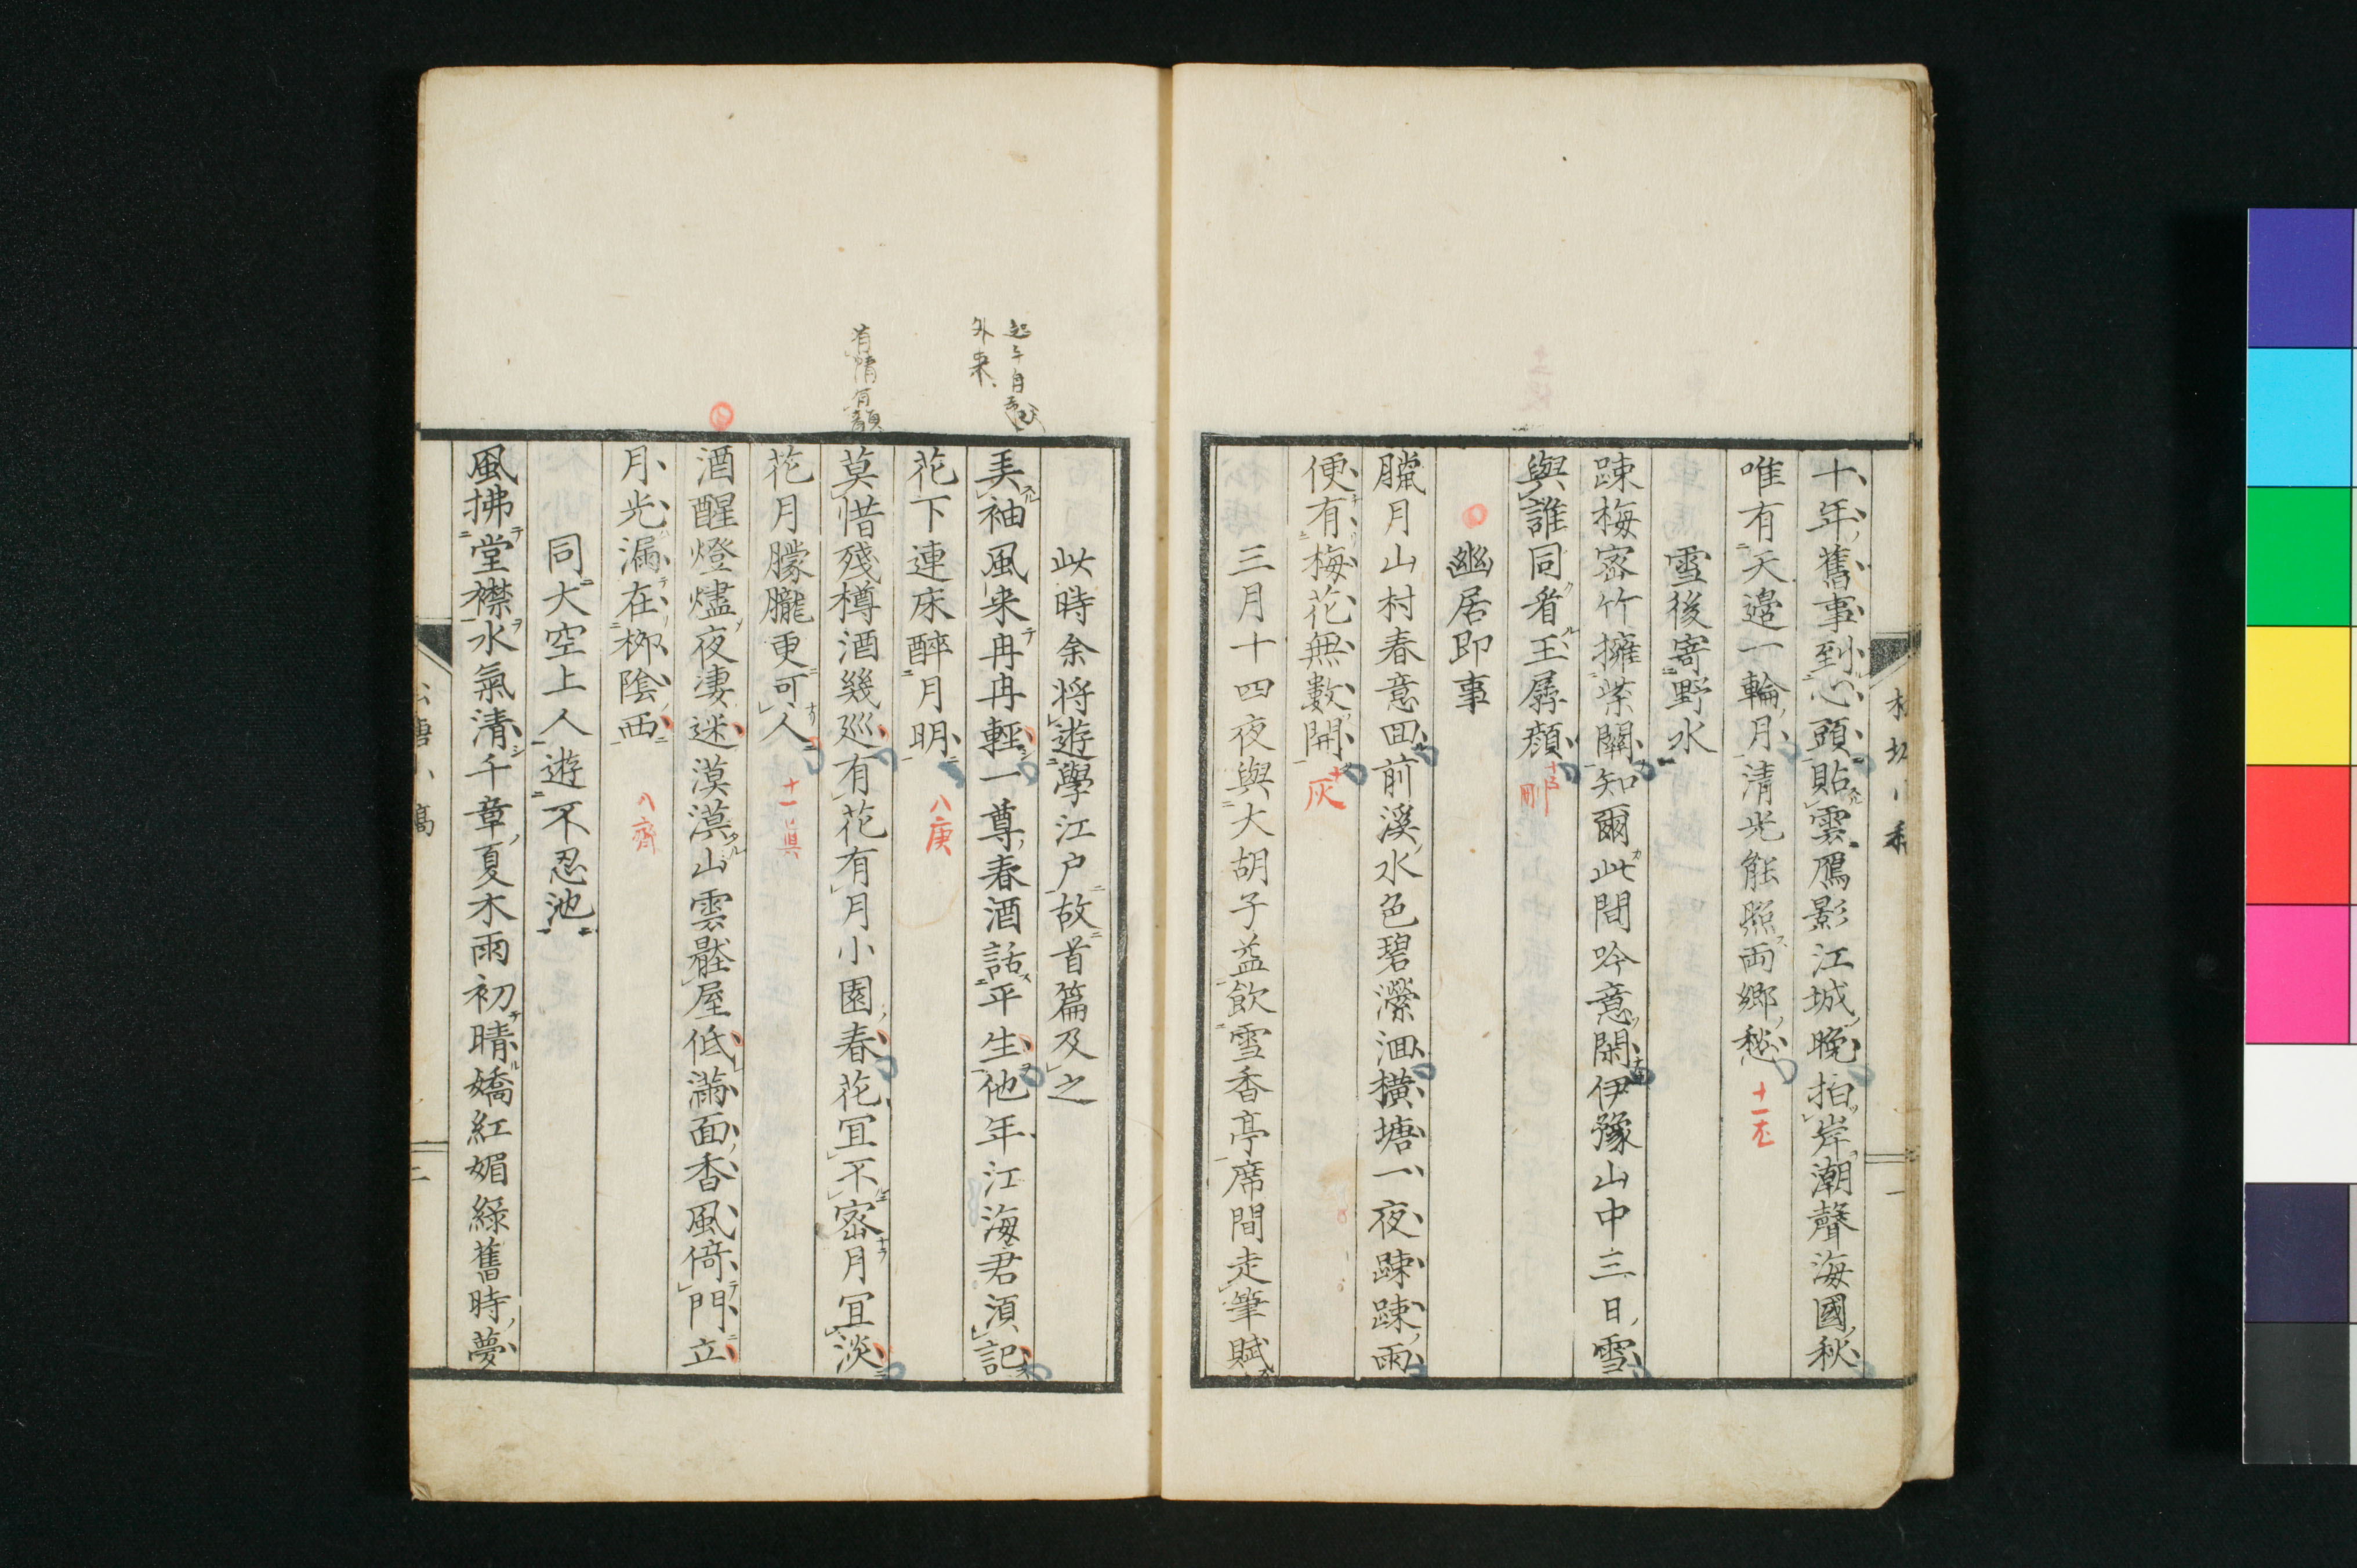 十年舊事到心頭貼雲鴈影江城晚拍岸潮聲海國秋
唯有天邉一輪月清光能照兩郷愁
雪後寄野水
踈梅宻竹擁柴關知爾此間吟意閑伊豫山中三日雪
與誰同看玉孱顔
幽居即事
臘月山村春意回前溪水色碧濚洄横塘一夜踈踈雨
便有梅花無數開
十灰
三月十四夜與大胡子益飲雪香亭席間走筆賦
此時余将遊學江户故首篇及之
美袖風来冉冉輕一尊春酒話平生他年江海君須記
花下連床醉月明
八庚
莫惜殘樽酒幾巡有花有月小園春花冝不宻月冝淡
花月朦朧更可人
十一真
酒醒燈燼夜凄迷漠漠山雲壓屋低滿面香風倚門立
月光漏在栁陰西
八齊
同大空上人遊不忍池
風拂堂襟水氣清千章夏木雨初晴嬌紅媚緑舊時夢
外来
一
二